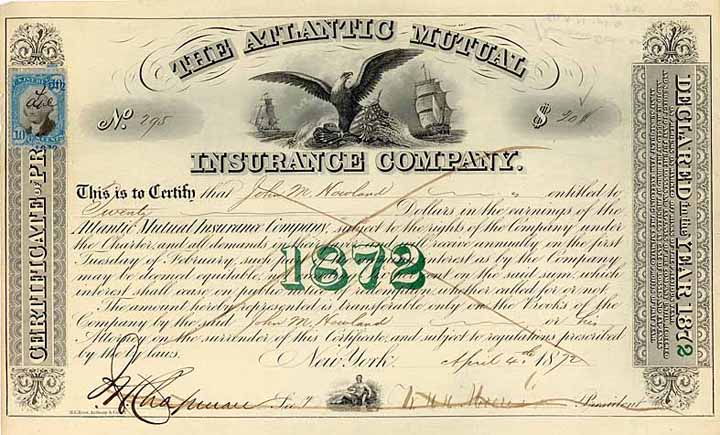 THE ATLANTIC MUTUAL
No. 295
$ 20
INSURANCE COMPANY.
This is to Certify that John M. Newland entitled to
Twenty Dollars in the earnings of the
Atlantic Mutual Insurance Company, subject to the rights of the Company under
the Charter, and all demands on receive annually on the first
Tuesday of February, such interest as by the Company
may be deemed equitable, on the said sum, which
interest shall cease on public notice of redemption whether called for or not.
The amount hereby represented is transferable only on the Books of the
Company by the said John M. Newland or his
Attorney on the surrender of this Certificate, and subject to regulations prescribed
by the By laws.
1872
New York. April 4th 1872
Chapman Sec'y
President
CERTIFICATE OF PR
DECLARED in the YEAR 1872
10